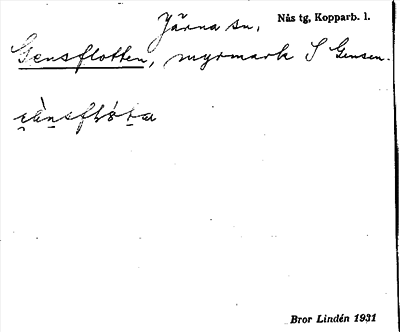 Järna sn. Nås tg, Kopparb. l.
Gensflotten, myrmark S Gensen.
Bror Lindén 1931